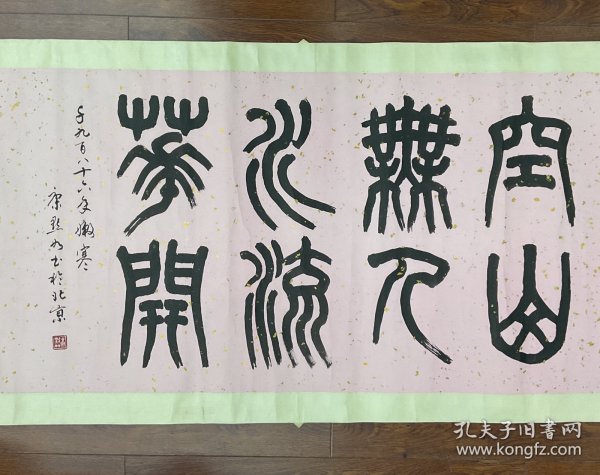 空山
無人
水流
華開
千九百八十六年嫩寒
康默如书於北京
孔夫子旧书网
www.kongfz.com